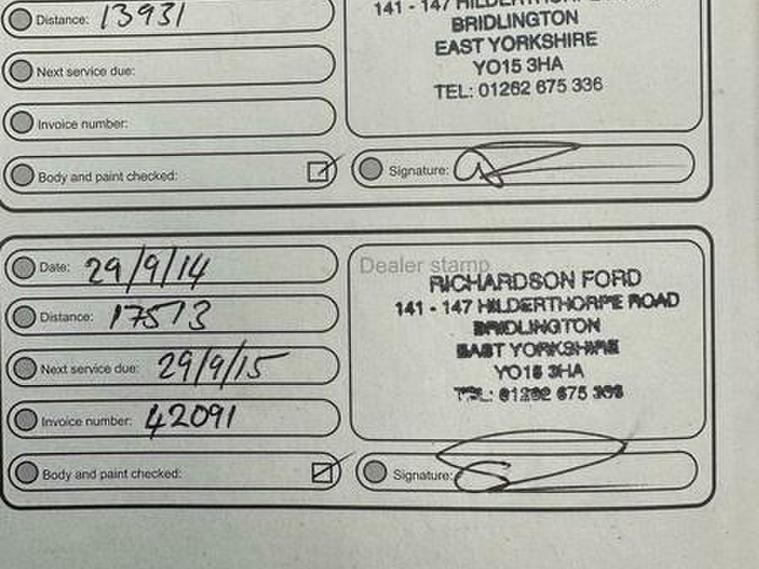 Distance: 13931
141 - 147 HILDERTHORPE ROAD
BRIDLINGTON
EAST YORKSHIRE
YO15 3HA
TEL: 01262 675 336
Next service due:
Invoice number:
Body and paint checked:
Signature:
Date: 29/9/14
Dealer stamp
RICHARDSON FORD
141 - 147 HILDERTHORPE ROAD
BRIDLINGTON
EAST YORKSHIRE
YO15 3HA
TEL: 01262 675 336
Distance: 17513
Next service due: 29/9/15
Invoice number: 42091
Body and paint checked:
Signature: